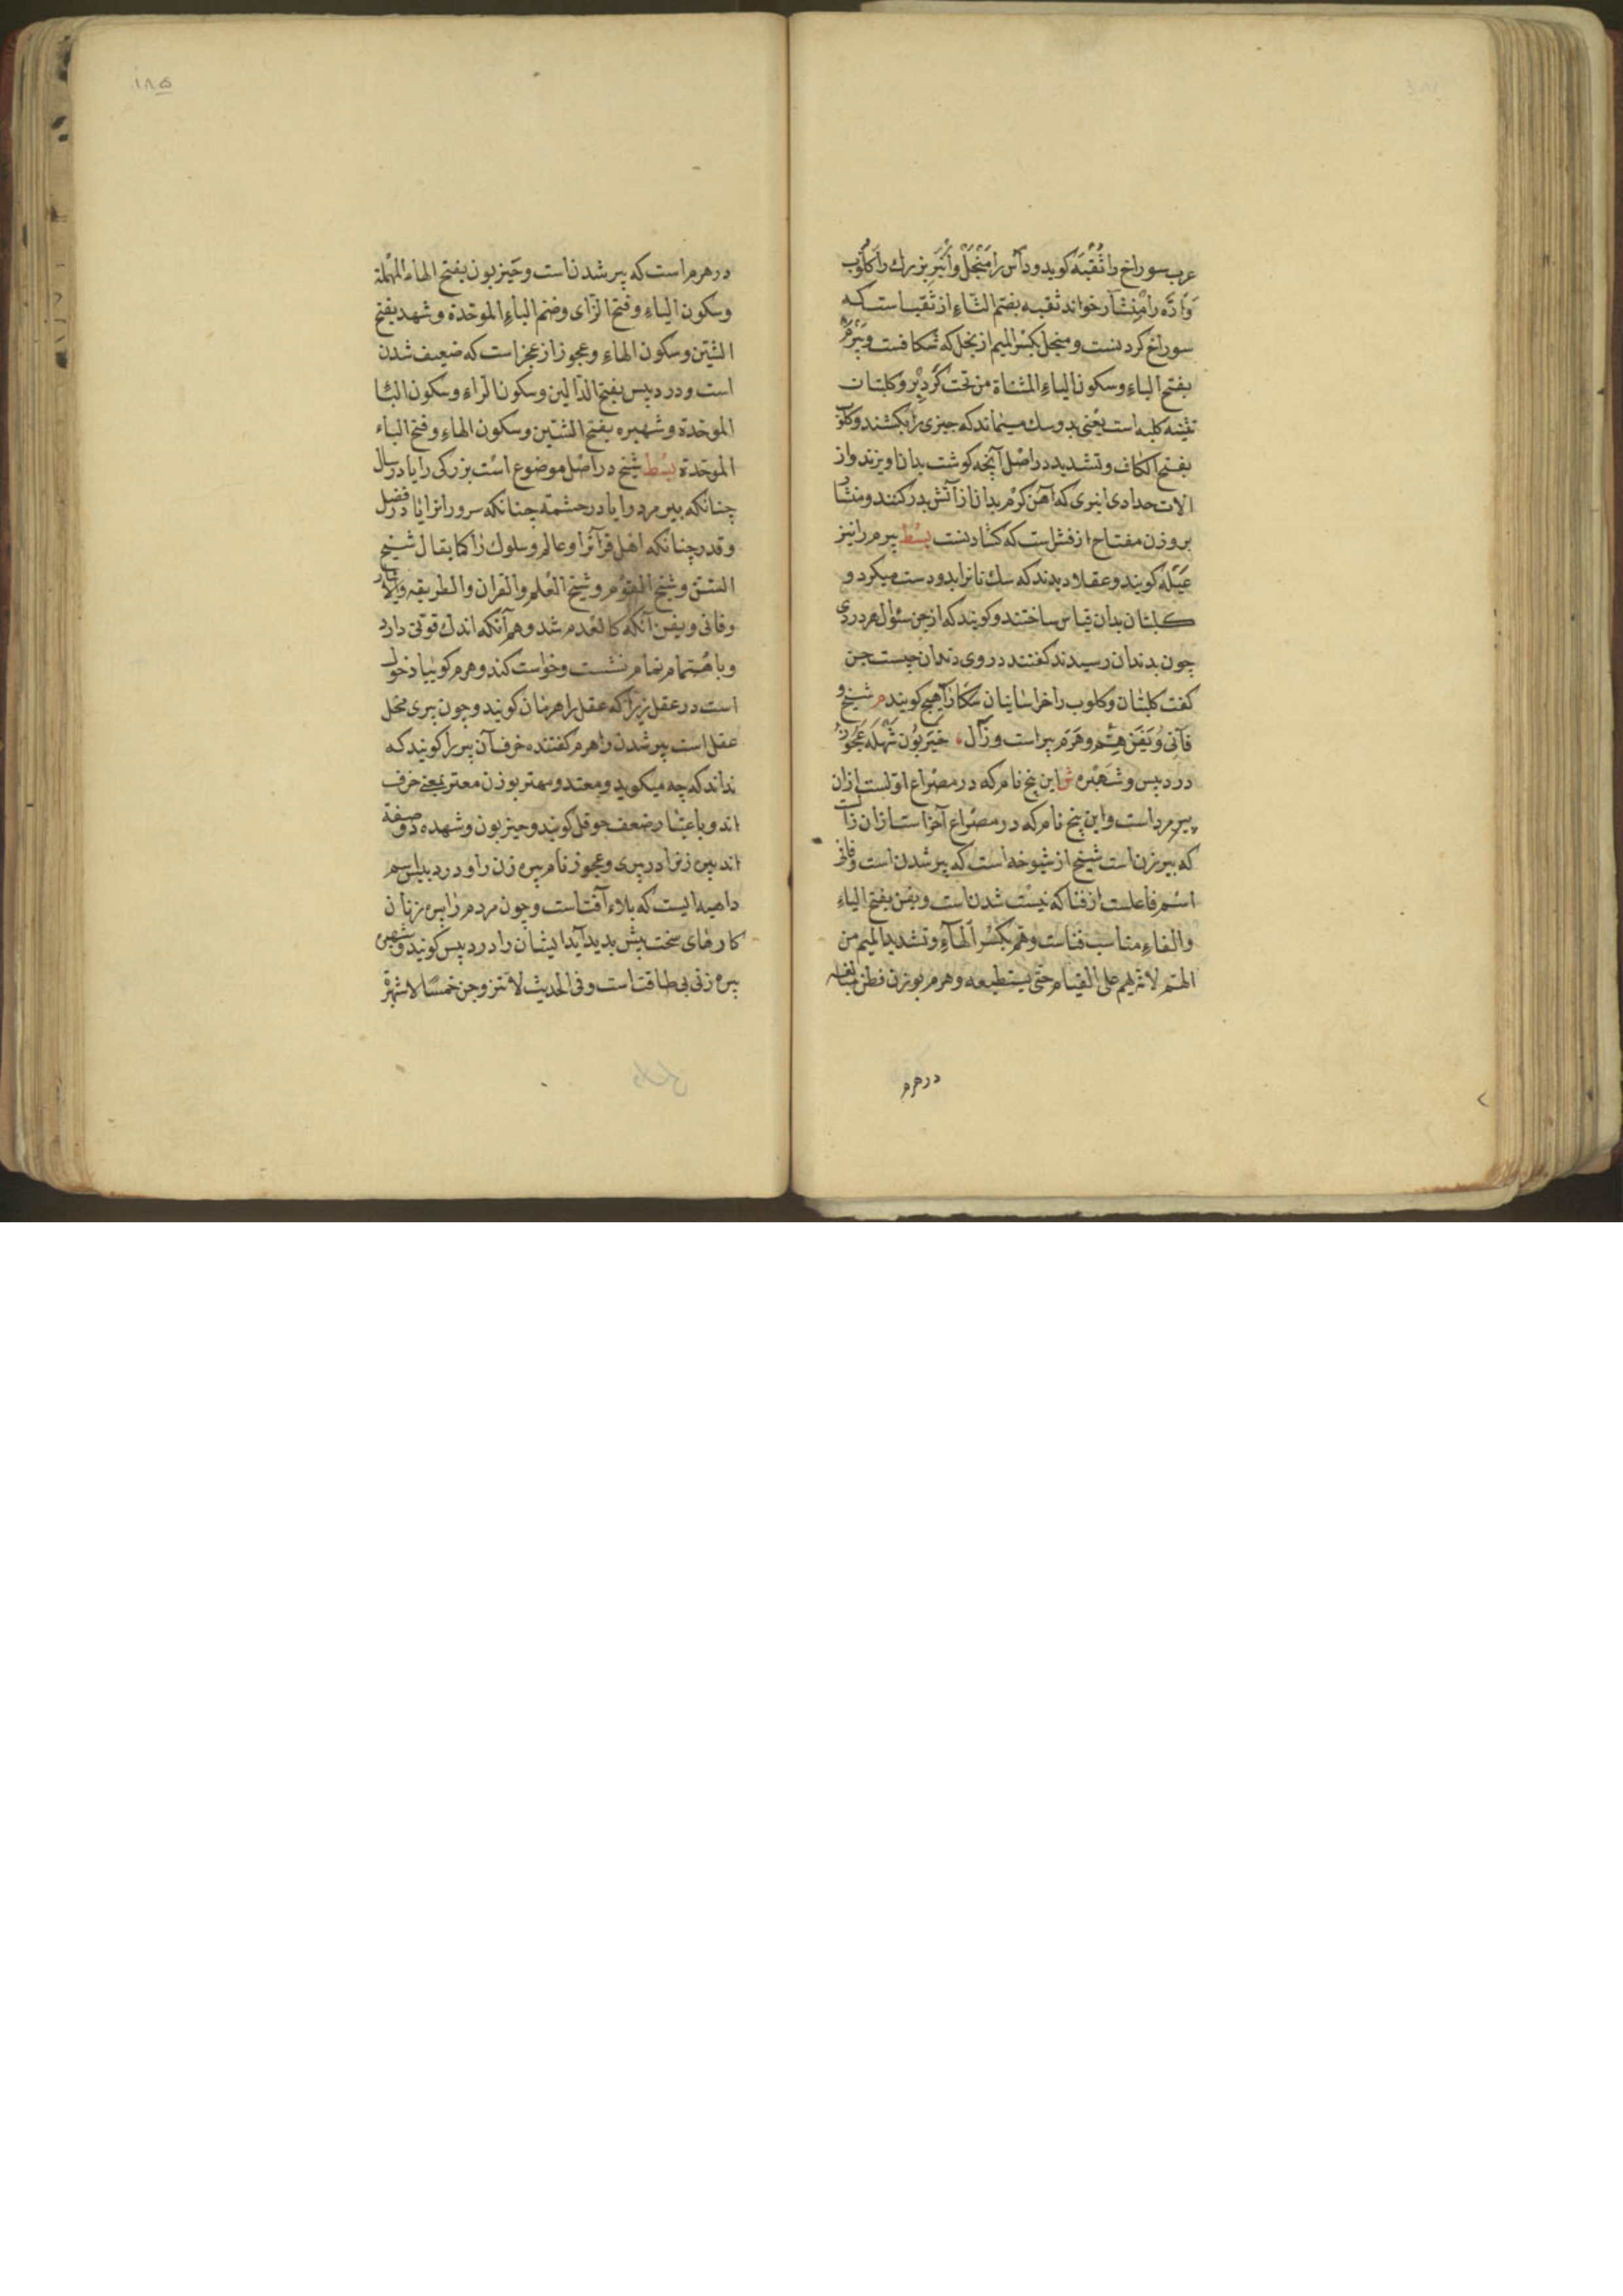 عرب سوراخ را ثُقْبَه كويد وداس را مِنْجَل وانبر بزرك را كلّوب
وارّه را مِنْشار خوانند ثقبه بضم الثاء از ثقب است كه
سوراخ كردنست و منجل بكسر الميم از نجل كه شكافتست وبَيْرَم
بفتح الباء وسكون الياء المثناة من تحت كُردبُر وكلبتان
تثنيه كلبه است يعنى بدو سك ميماند كه چيزى را بكشند وكلوب
بفتح الكاف وتشديد در اصل آنچه كوشت بدان آويزند واز
آلات حدادى انبرى كه آهن كرم بدان از آتش بدر كنند ومنشار
بروزن مفتاح از نشر است كه كشادنست بسط بيرم را نيز
عَتَله كويند وعقلا ديدند كه سك نانرا بدو دست ميكرد و
كلبتان بدان قياس ساختند وكويند كه از جن سئوال هر دردى
چون بدندان رسيدند كفتند دروى دندان چيست جن
كفت كلبتان وكلوب را خراسانيان آهنج كويند م شيخ و
فانى ويَفَن هِمّ وهَرَم پير است وزال ، حَيْزَبُون شَهْلَه عَجُوز
دردبيس وشَهْبَره ش اين پنج نام كه در مصراع اولست ازان
پير مرد است واين پنج نام كه در مصراع آخر است ازان زال
كه پير زن است شيخ از شيوخه است كه پير شدن است وفانى
اسم فاعلست از فنا كه نيست شدن است ويفن بفتح الياء
والفاء مناسب فناست وهِمّ بكسر الهاء وتشديد الميم من
الهتم لانّه يهم على القيام حتى يستطيعه وهرم بوزن فطن مبالغه
در هرم
١٨٥
در هرم است كه پير شدن است وحَيْزبون بفتح الحاء المهملة
وسكون الياء وفتح الزاى وضم الباء الموحدة وشهد بفتح
الشين وسكون الهاء وعجوز از عجز است كه ضعيف شدن
است ودردبيس بفتح الدالين وسكون الراء وسكون الباء
الموحدة وشهبره بفتح الشين وسكون الهاء وفتح الباء
الموحدة بسط شيخ در اصل موضوع است بزركى را يا در سال
چنانكه پير مرد و يا در حشمة چنانكه سرورانرا يا در فضل
وقدر چنانكه اهل قرآنرا وعالم وسلوك را كما يقال شيخ
السنّ وشيخ القوم وشيخ العلم والقران والطريقه والآثار
وفانى ويفن آنكه كالعدم شد وهم آنكه اندك قوتى دارد
وباهتمام تمام نشست وخواست كند وهرم كوبيا دخول
است در عقل زيرا كه عقل را هرمان كويند وچون پيرى مخل
عقل است پير شدن را هرم كفتند خرف آن پير را كويند كه
نداند كه چه ميكويد ومعتد وسمتر بوزن معتر بمعنى خرف
اند وباعتبار ضعف حوقل كويند وحيزبون وشهده دو صفة
اند پير زنرا در پيرى وعجوز نام پير زن را ودردبيس اسم
داهيه ايست كه بلاء آفت است وچون مردم را پيره زنان
كارهاى سخت پيش بديد آيد ايشان را دردبيس كويند وشهبره
پيره زنى بى طاقت است وفى الحديث لا تتزوجن خمسًا لا شهبرة